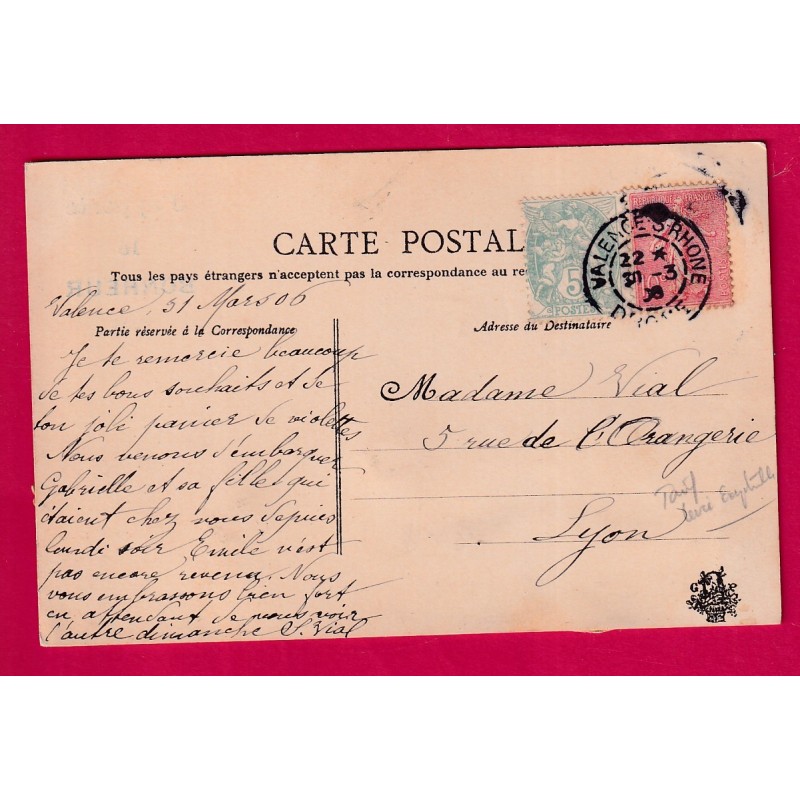 CARTE POSTAL
Tous les pays étrangers n'acceptent pas la correspondance au re
Valence, 31 Mars 06
Partie réservée à la Correspondance
Je te remercie beaucoup
de tes bons souhaits et de
ton joli panier de violettes
Nous venons d'embarquer
Gabrielle et sa fille qui
étaient chez nous depuis
lundi soir Emile n'est
pas encore revenu. Nous
vous embrassons bien fort
en attendant de vous voir
l'autre dimanche S. Vial
Adresse du Destinataire
Madame Vial
5 rue de l'Orangerie
Lyon
Tarif
RÉPUBLIQUE FRANÇAISE
5
POSTES
VALENCE-S-RHONE
22 *
31 - 3
DROME
BONHEUR
G P